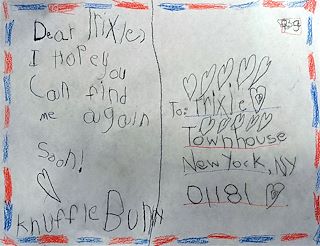 Dear Trixie,
I Hope you
Can find
me again
Soon!
Knuffle Bunny
To: Trixie
Townhouse
New York, NY
01181